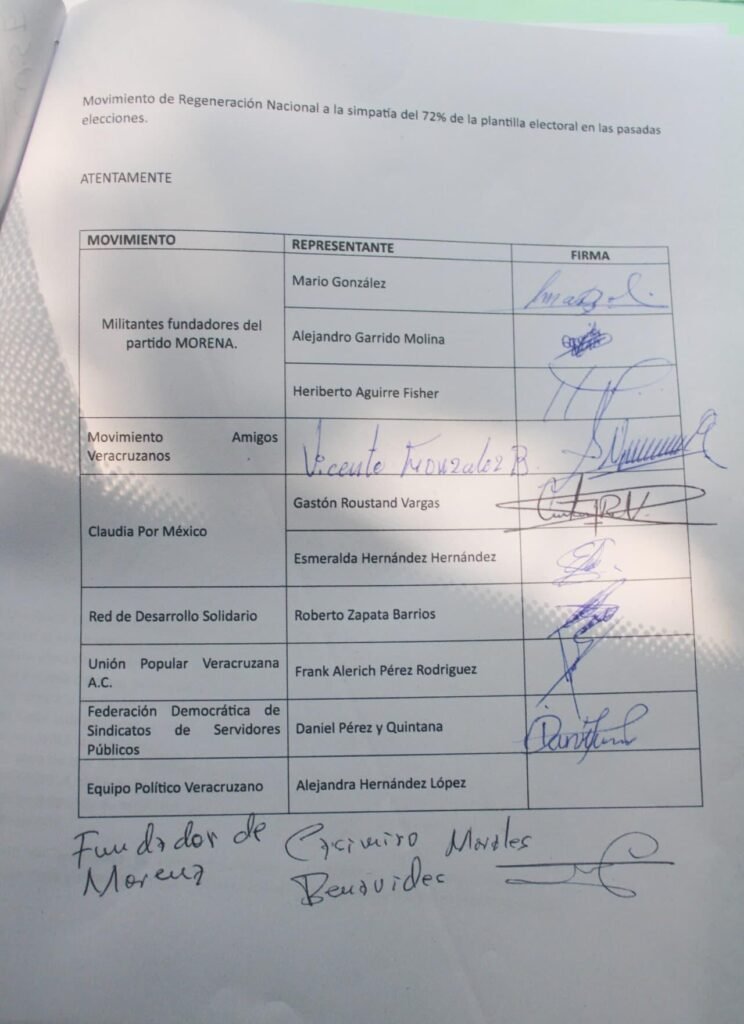 Movimiento de Regeneración Nacional a la simpatía del 72% de la plantilla electoral en las pasadas
elecciones.
ATENTAMENTE
MOVIMIENTO REPRESENTANTE FIRMA
Mario González
Militantes fundadores del
partido MORENA.
Alejandro Garrido Molina
Heriberto Aguirre Fisher
Movimiento Amigos
Veracruzanos
Vicente Gonzalez B.
Claudia Por México
Gastón Roustand Vargas
Esmeralda Hernández Hernández
Red de Desarrollo Solidario Roberto Zapata Barrios
Unión Popular Veracruzana
A.C.
Frank Alerich Pérez Rodriguez
Federación Democrática de
Sindicatos de Servidores
Públicos
Daniel Pérez y Quintana
Equipo Político Veracruzano Alejandra Hernández López
Fundador de Casimiro Morales
Morena Benavides